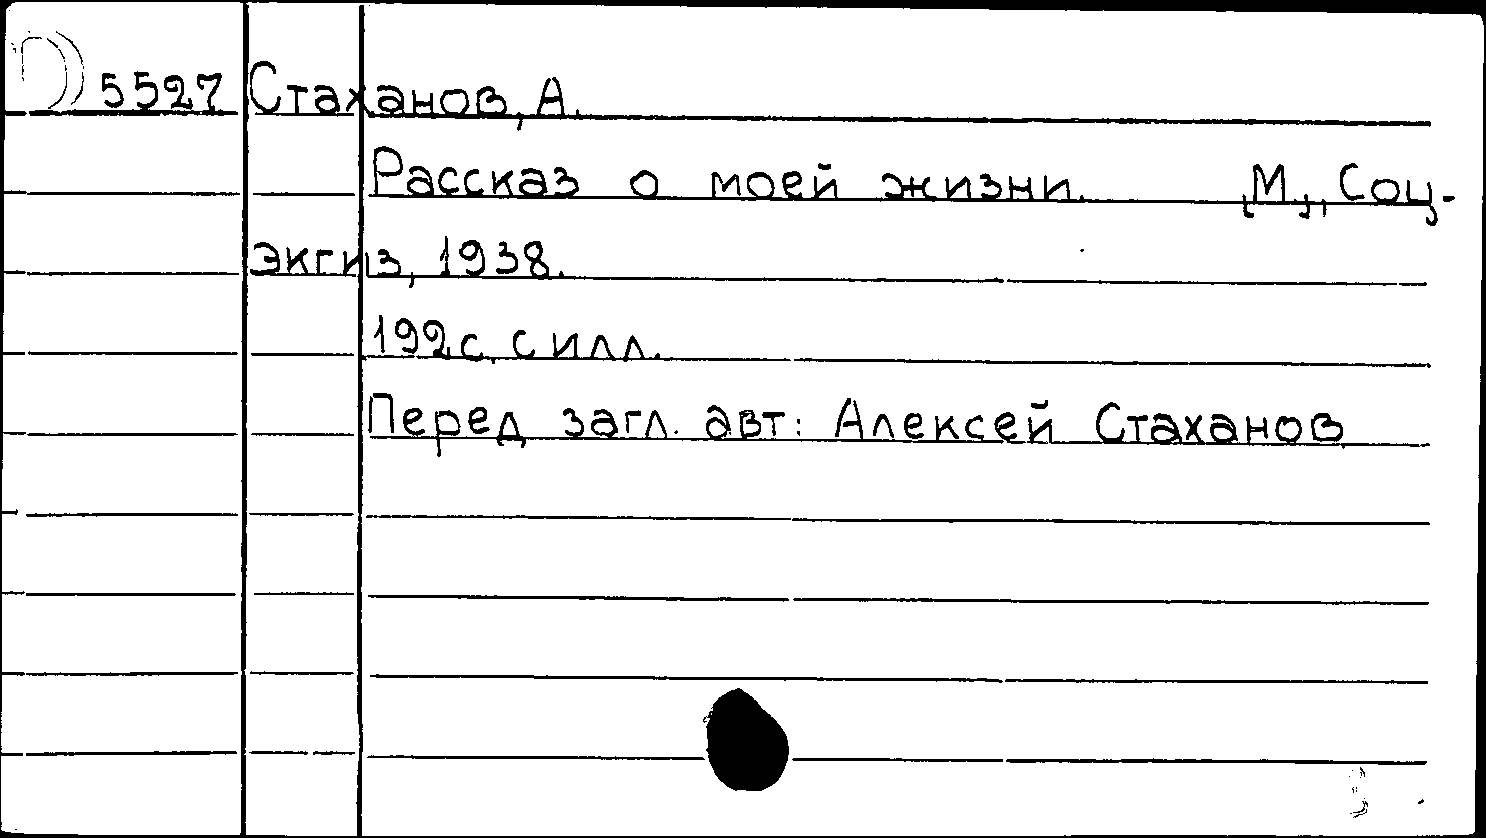 5527 Стаханов, А.
Рассказ о моей жизни. [М.], Соц-
экгиз, 1938.
192 с. с илл.
Перед загл. авт: Алексей Стаханов